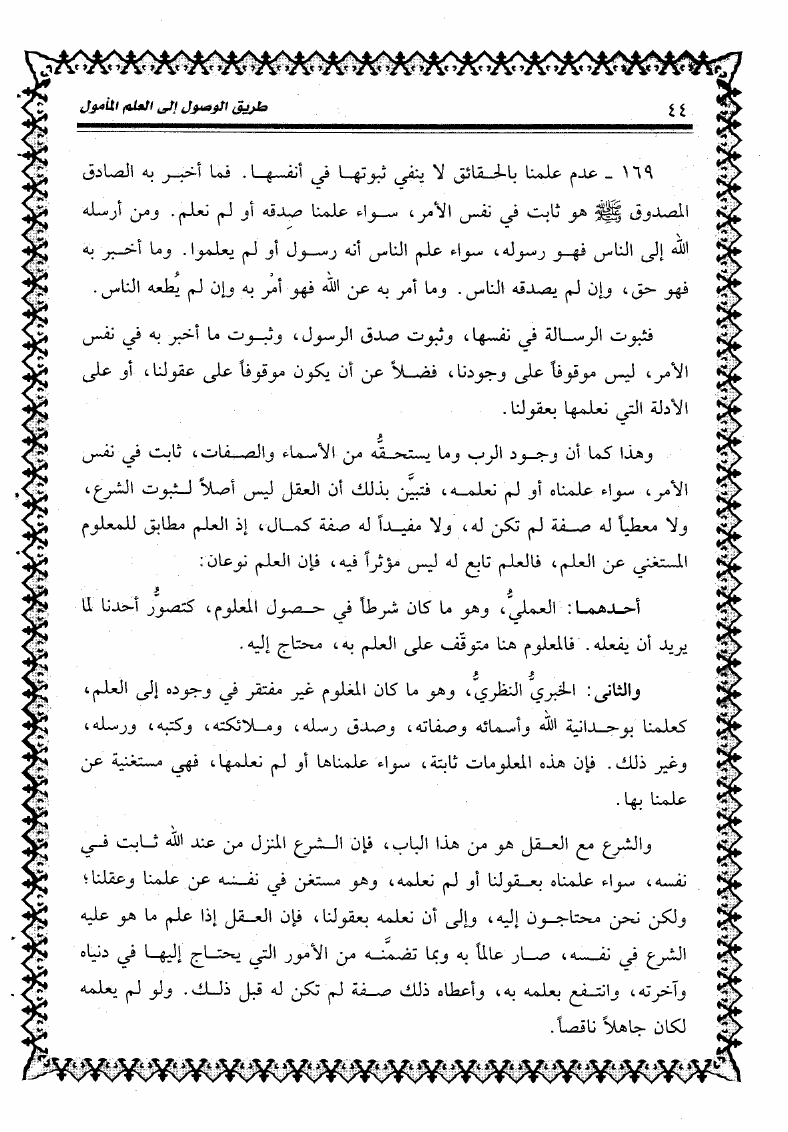 ٤٤
طريق الوصول إلى العلم المأمول
١٦٩ ـ عدم علمنا بالحقائق لا ينفي ثبوتها في أنفسها. فما أخبر به الصادق
المصدوق ﷺ هو ثابت في نفس الأمر، سواء علمنا صدقه أو لم نعلم. ومن أرسله
الله إلى الناس فهو رسوله، سواء علم الناس أنه رسول أو لم يعلموا. وما أخبر به
فهو حق، وإن لم يصدقه الناس. وما أمر به عن الله فهو أمْر به وإن لم يُطعه الناس.
فثبوت الرسالة في نفسها، وثبوت صدق الرسول، وثبوت ما أخبر به في نفس
الأمر، ليس موقوفاً على وجودنا، فضلاً عن أن يكون موقوفاً على عقولنا، أو على
الأدلة التي نعلمها بعقولنا.
وهذا كما أن وجود الرب وما يستحقُّه من الأسماء والصفات، ثابت في نفس
الأمر، سواء علمناه أو لم نعلمه، فتبيَّن بذلك أن العقل ليس أصلاً لثبوت الشرع،
ولا معطياً له صفة لم تكن له، ولا مفيداً له صفة كمال، إذ العلم مطابق للمعلوم
المستغني عن العلم، فالعلم تابع له ليس مؤثراً فيه، فإن العلم نوعان:
أحدهما: العمليُّ، وهو ما كان شرطاً في حصول المعلوم، كتصوُّر أحدنا لما
يريد أن يفعله. فالمعلوم هنا متوقف على العلم به، محتاج إليه.
والثاني: الخبريُّ النظريُّ، وهو ما كان المعلوم غير مفتقر في وجوده إلى العلم،
كعلمنا بوحدانية الله وأسمائه وصفاته، وصدق رسله، وملائكته، وكتبه، ورسله،
وغير ذلك. فإن هذه المعلومات ثابتة، سواء علمناها أو لم نعلمها، فهي مستغنية عن
علمنا بها.
والشرع مع العقل هو من هذا الباب، فإن الشرع المنزل من عند الله ثابت في
نفسه، سواء علمناه بعقولنا أو لم نعلمه، وهو مستغن في نفسه عن علمنا وعقلنا؛
ولكن نحن محتاجون إليه، وإلى أن نعلمه بعقولنا، فإن العقل إذا علم ما هو عليه
الشرع في نفسه، صار عالماً به وبما تضمَّنه من الأمور التي يحتاج إليها في دنياه
وآخرته، وانتفع بعلمه به، وأعطاه ذلك صفة لم تكن له قبل ذلك. ولو لم يعلمه
لكان جاهلاً ناقصاً.